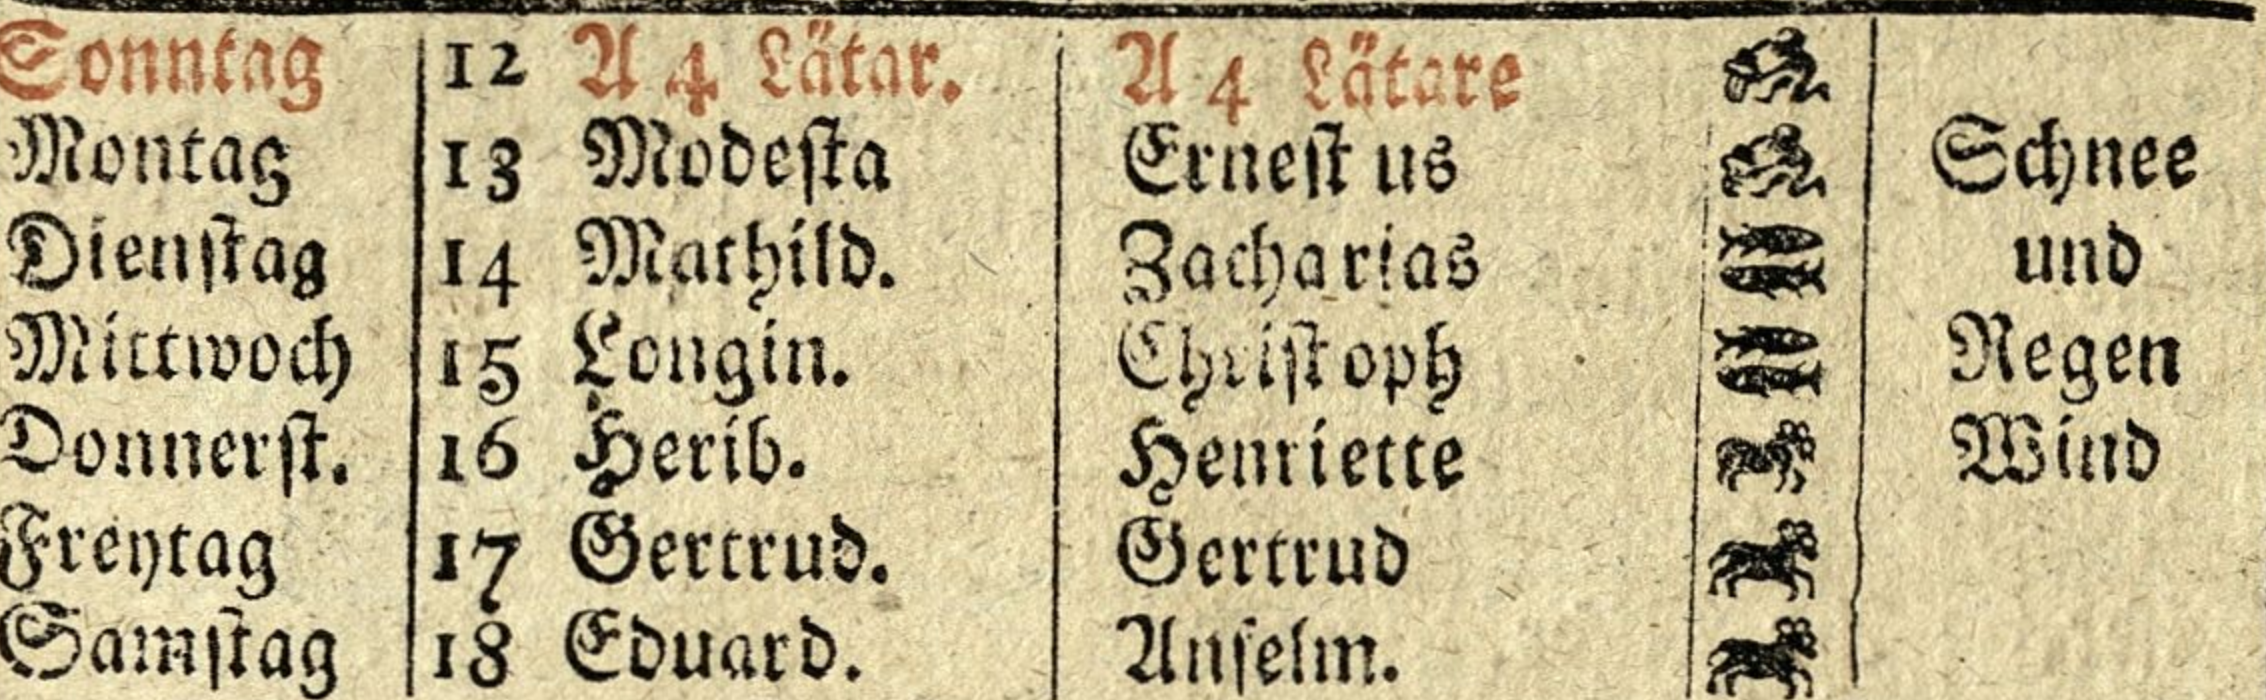 Sonntag 12 A 4 Lätar. A 4 Lätare
Montag 13 Modesta Ernestus Schnee
Dienstag 14 Mathild. Zacharias und
Mittwoch 15 Longin. Christoph Regen
Donnerst. 16 Herib. Henriette Wind
Freytag 17 Gertrud. Gertrud
Samstag 18 Eduard. Anselm.